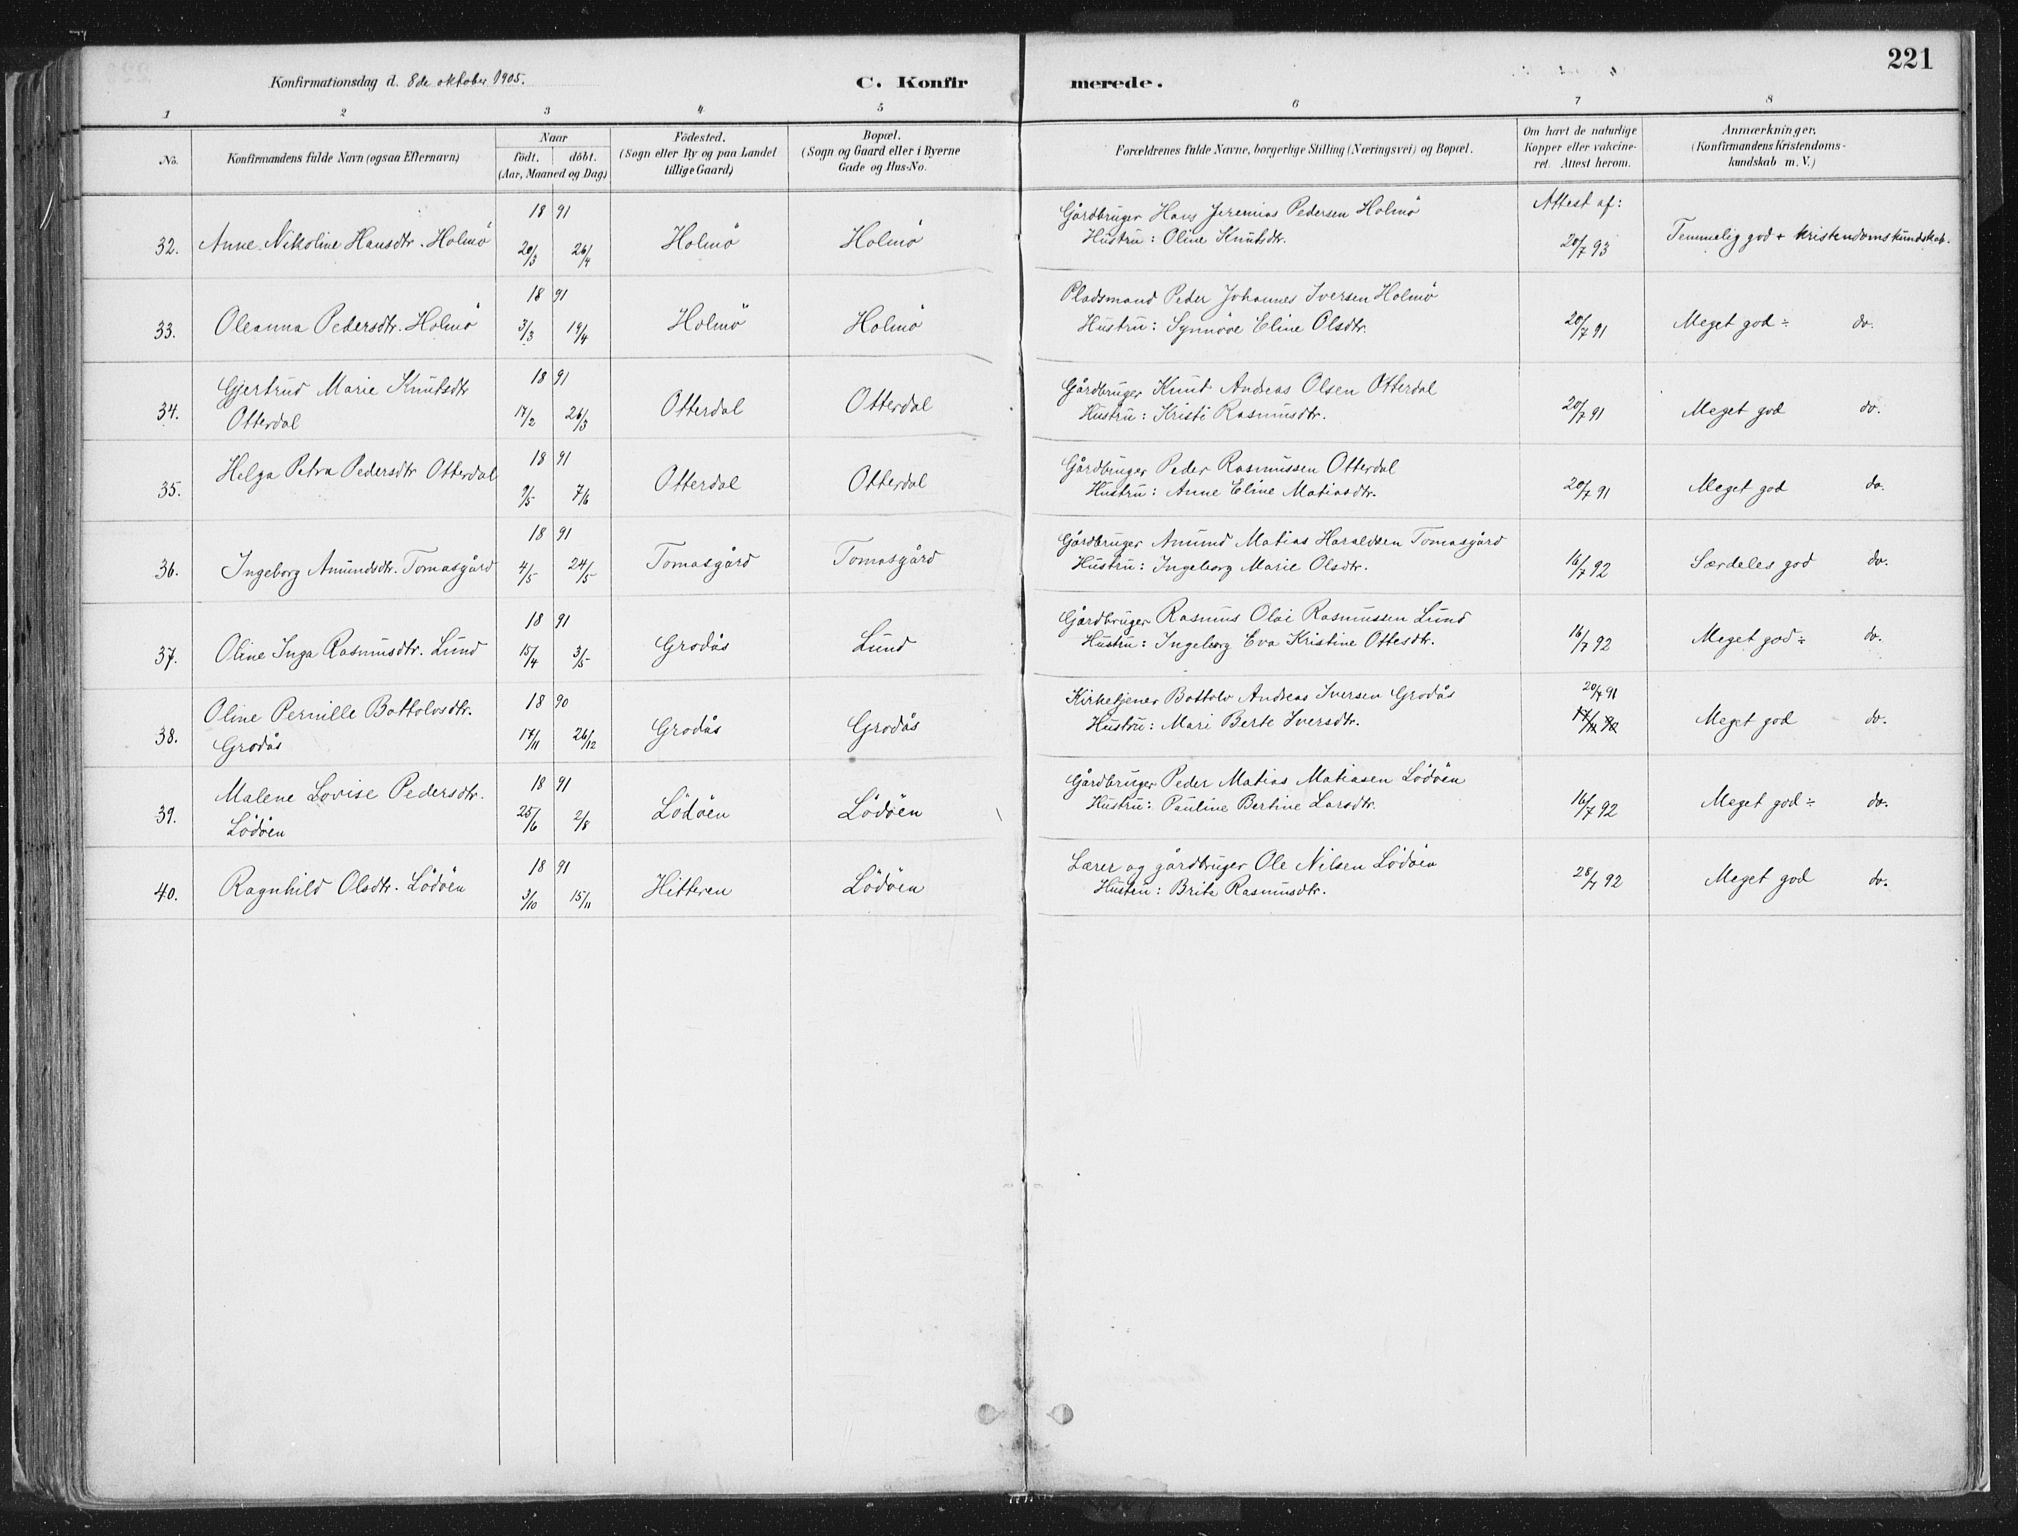 221
Konfirmationsdag d. 8de oktober 1905.
C. Konfirmerede.
1 2 3 4 5 6 7 8
No.
Konfirmandens fulde Navn (ogsaa Efternavn)
Naar
födt. döbt.
(Aar, Maaned og Dag)
Födested.
(Sogn eller By og paa Landet
tillige Gaard)
Bopæl.
(Sogn og Gaard eller i Byerne
Gade og Hus-No.
Forældrenes fulde Navne, borgerlige Stilling (Næringsvei) og Bopæl.
Om havt de naturlige
Kopper eller vakcine-
ret. Attest herom.
Anmærkninger.
(Konfirmandens Kristendoms-
kundskab m. V.)
18 91
Gårdbruger Hans Jeremias Pedersen Holmö
Attest af:
32. Anne Nikoline Hansdtr. Holmö 20/3 26/4 Holmö Holmö
Hustru: Oline Knutsdtr. 20/7 93 Temmelig god + kristendomskundskab.
18 91
Pladsmand Peder Johannes Iversen Holmö
33. Oleanna Pedersdtr. Holmö 3/3 19/4 Holmö Holmö
Hustru: Synnöve Eline Olsdtr. 20/7 91 Meget god ÷ do.
Gjertrud Marie Knutsdtr 18 91
Gårdbruger Knut Andreas Olsen Otterdal
34. Otterdal 17/2 26/3 Otterdal Otterdal
Hustru: Kristi Rasmusdtr. 20/7 91 Meget god do.
Helga Petra Pedersdtr Otterdal 18 91
Gårdbruger Peder Rasmussen Otterdal
35. 9/5 7/6 Otterdal Otterdal
Hustru: Anne Eline Matiasdtr. 20/7 91 Meget god do.
18 91
Gårdbruger Amund Matias Haraldsen Tomasgård
36. Ingeborg Amundsdtr. Tomasgård 4/5 24/5 Tomasgård Tomasgård
Hustru: Ingeborg Marie Olsdtr. 16/7 92 Særdeles god do.
18 91
Gårdbruger Rasmus Olai Rasmussen Lund
37. Oline Inga Rasmusdtr. Lund 15/4 3/5 Grodås Lund
Hustru: Ingeborg Eva Kristine Ottesdtr. 16/7 92 Meget god ÷ do.
Oline Pernille Bottolvsdtr. 18 90
Kirketjener Bottolv Andreas Iversen Grodås 20/7 91
38. Grodås 17/11 26/12 Grodås Grodås
Hustru: Mari Berte Iversdtr. 17/11 90 Meget god do.
Malene Lovise Pedersdtr. 18 91
Gårdbruger Peder Matias Matiasen Lödöen
39. Lödöen 25/6 2/8 Lödöen Lödöen
Hustru: Pauline Bertine Larsdtr. 16/7 92 Meget god ÷ do.
18 91
Lærer og gårdbruger Ole Nilsen Lödöen
40. Ragnhild Olsdtr. Lödöen 3/10 15/11 Hitteren Lödöen
Hustru: Brite Rasmusdtr. 28/7 92 Meget god do.